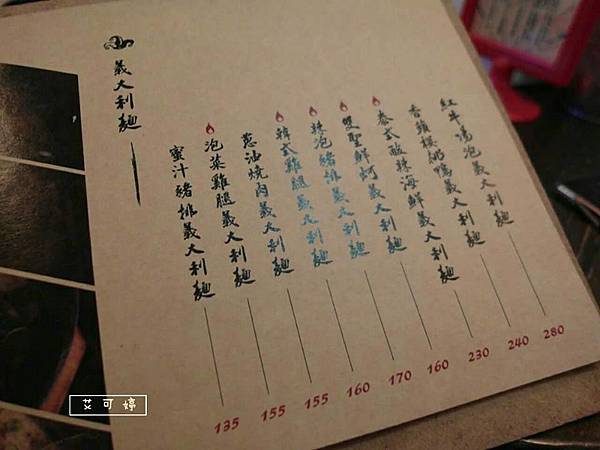 義大利麵
蜜汁豬排義大利麵 135
泡菜雞腿義大利麵 155
蔥油燒肉義大利麵 155
韓式雞腿義大利麵 160
辣泡豬排義大利麵 170
雙聖鮮蚵義大利麵 160
泰式酸辣海鮮義大利麵 230
香頌櫻桃鴨義大利麵 240
紅牛湯泡義大利麵 280
艾可婷